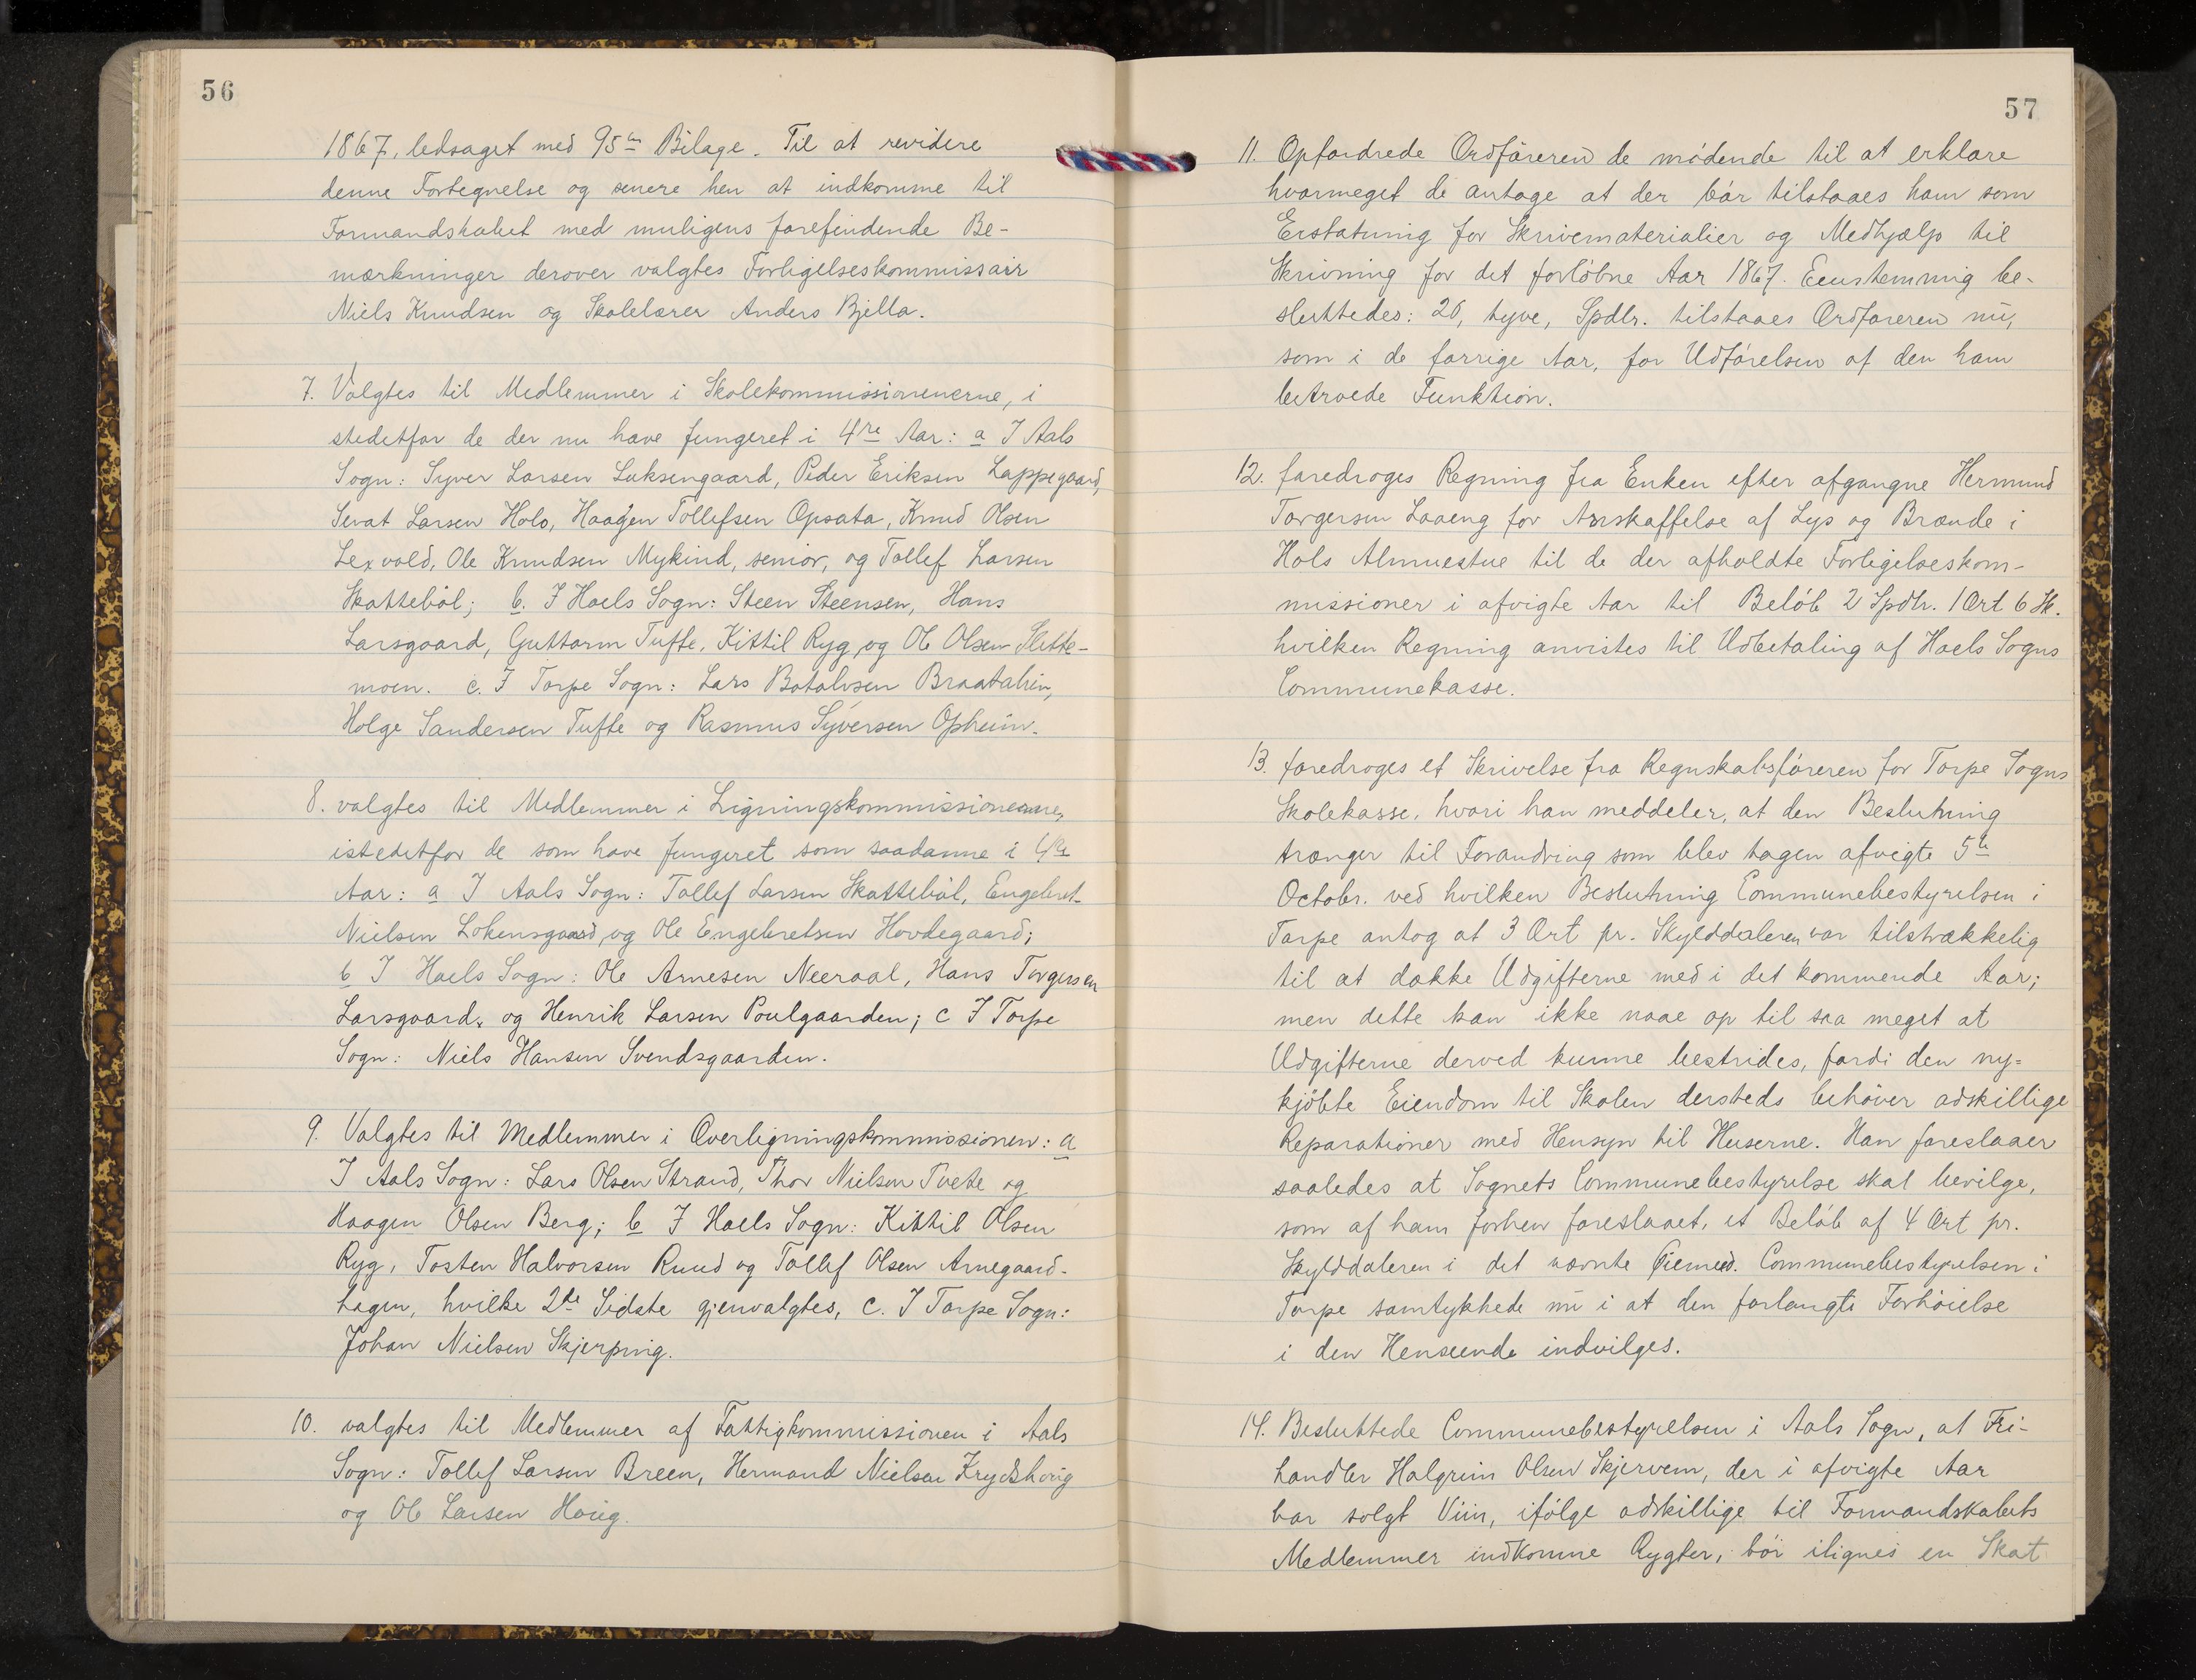 56
1867, ledsaget med 95 Bilage. Til at revidere
denne Fortegnelse og senere hen at indkomme til
Formandskabet med muligens forefindende Be-
mærkninger derover valgtes Forligelseskommissair
Niels Knudsen og Skolelærer Anders Bjella.
7. Valgtes til Medlemmer i Skolekommissionenerne, i
stedetfor de der nu have fungeret i 4re Aar: a I Aals
Sogn: Syver Larsen Luksengaard, Peder Eriksen Lappegaard,
Sevat Larsen Holo, Haagen Tollefsen Opsata, Knud Olsen
Lexvold, Ole Knudsen Mykind, senior, og Tollef Larsen
Skattebøl; b. I Hoels Sogn: Steen Steensen, Hans
Larsgaard, Guttorm Tufte, Kittil Ryg og Ole Olsen Slette-
moen. c. I Torpe Sogn: Lars Botolvsen Braatalien,
Holge Sandersen Tufte og Rasmus Syversen Opheim.
8. valgtes til Medlemmer i Ligningskommissionerne,
istedetfor de som have fungeret som saadanne i 4re
Aar: a I Aals Sogn: Tollef Larsen Skattebøl, Engebret
Nielsen Lokensgaard, og Ole Engebretsen Hovdegaard;
b I Hoels Sogn: Ole Arnesen Neeraal, Hans Torgersen
Larsgaard, og Henrik Larsen Poulgaarden; c I Torpe
Sogn: Niels Hansen Svendsgaarden.
9. Valgtes til Medlemmer i Overligningskommissionen: a
I Aals Sogn: Lars Olsen Strand, Thor Nielsen Tvete og
Haagen Olsen Berg; b I Hoels Sogn: Kittil Olsen
Ryg, Tosten Halvorsen Ruud og Tollef Olsen Arnegaard-
hagen, hvilke 2de Sidste gjenvalgtes, c. I Torpe Sogn:
Johan Nielsen Skjerping.
10. valgtes til Medlemmer af Fattigkommissionen i Aals
Sogn: Tollef Larsen Breen, Hermand Nielsen Krydshoug
og Ole Larsen Houg.
57
11. Opfordrede Ordføreren de mødende til at erklære
hvormeget de antage at der bør tilstaaes ham som
Erstatning for Skrivematerialier og Medhjælp til
Skrivning for det forløbne Aar 1867. Eenstemmig be-
sluttedes: 20, tyve, Spdlr. tilstaaes Ordføreren nu,
som i de forrige Aar, for Udførelsen af den ham
betroede Funktion.
12. foredroges Regning fra Enken efter afgangne Hermund
Torgersen Laaeng for Anskaffelse af Lys og Brænde i
Hols Almuestue til de der afholdte Forligelseskom-
missioner i afvigte Aar til Beløb 2 Spdlr. 1 Ort 6 Sk.
hvilken Regning anvistes til Udbetaling af Hoels Sogns
Communekasse.
13. foredroges et Skrivelse fra Regnskabsføreren for Torpe Sogns
Skolekasse, hvori han meddeler, at den Beslutning
trænger til Forandring som blev tagen afvigte 5te
Octobr. ved hvilken Beslutning Communebestyrelsen i
Torpe antog at 3 Ort pr. Skylddaleren var tilstrækkelig
til at dække Udgifterne med i det kommende Aar;
men dette kan ikke naae op til saa meget at
Udgifterne derved kunne bestrides, fordi den ny-
kjöbte Eiendom til Skolen dersteds behøver adskillige
Reparationer med Hensyn til Huserne. Han foreslaaer
saaledes at Sognets Communebestyrelse skal bevilge,
som af ham forhen foreslaaet, et Beløb af 4 Ort pr.
Skylddaleren i det nævnte Øiemed. Communebestyrelsen i
Torpe samtykkede nu i at den forlangte Forhöielse
i den Henseende indvilges.
14. Besluttede Communebestyrelsen i Aals Sogn, at Fri-
handler Halgrim Olsen Skjervem, der i afvigte Aar
har solgt Viin, ifølge adskillige til Formandskabets
Medlemmer indkomne Rygter, bör ilignes en Skat